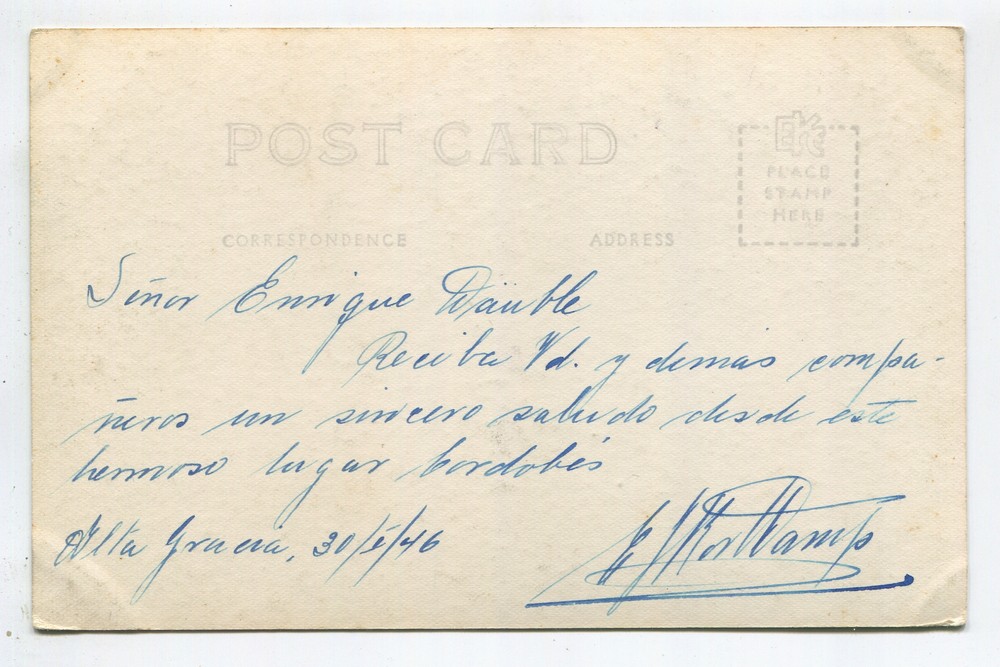 POST CARD
EKC
PLACE
STAMP
HERE
CORRESPONDENCE ADDRESS
Señor Enrique Däuble
Reciba Vd. y demas compa-
ñeros un sincero saludo desde este
hermoso lugar Cordobés
Alta Gracia, 30/ /46